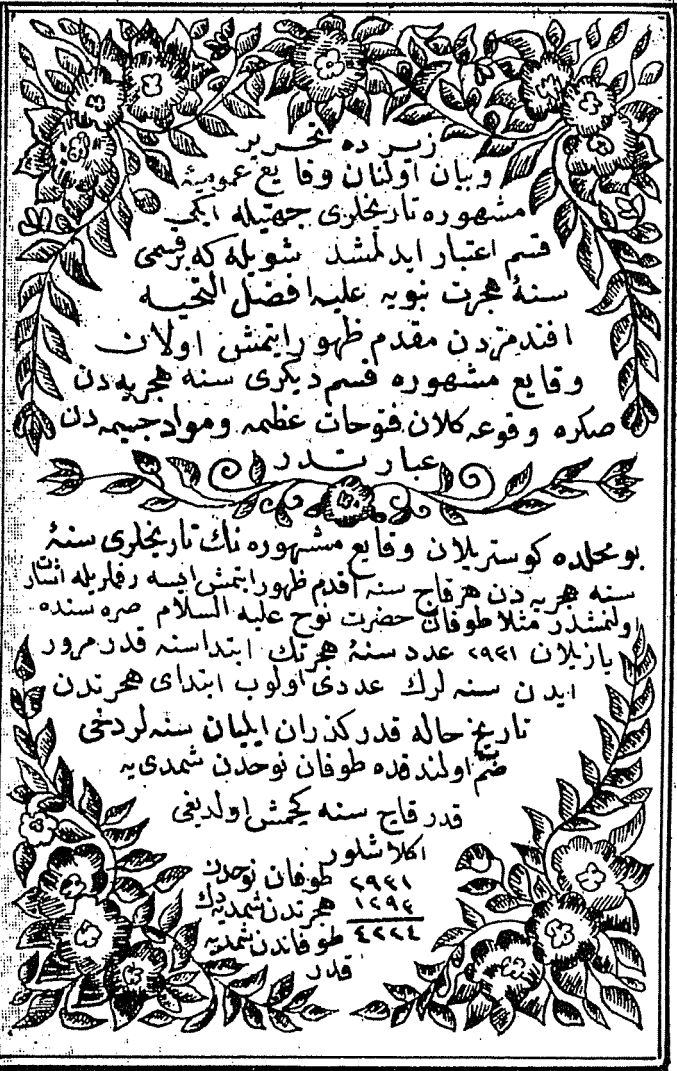 زيرده تحرير
وبيان اولنان وقايع عموميۀ
مشهوره تاريخلرى جهتيله ايكى
قسم اعتبار ايدلمشد شويله كه برقسمى
سنۀ هجرت نبويه عليه افضل التحيه
افندمزدن مقدم ظهور ايتمش اولان
وقايع مشهوره قسم ديكرى سنه هجريه دن
صكره وقوعه كلان فتوحات عظيمه ومواد جسيمه دن
عبارتدر
بو محلده كوستريلان وقايع مشهوره نك تاريخلرى سنۀ
سنه هجريه دن هر قاچ سنه اقدم ظهور ايتمش ايسه رقملريله اشار
ولنمشدر مثلا طوفان حضرت نوح عليه السلام صره سنده
يازيلان ٢٩٣١ عدد سنۀ هجرتك ابتداسنه قدر مرور
ايدن سنه لرك عددى اولوب ابتداى هجرتدن
تاريخ حاله قدر كذران ايليان سنه لردخى
ضم اولندقده طوفان نوحدن شمدى يه
قدر قاچ سنه كچمش اولديغى
اكلاشلور
٢٩٣١ طوفان نوحدن
١٢٩٣ هجرتدن شمديه دك
٤٢٢٤ طوفاندن شمديه
قدر